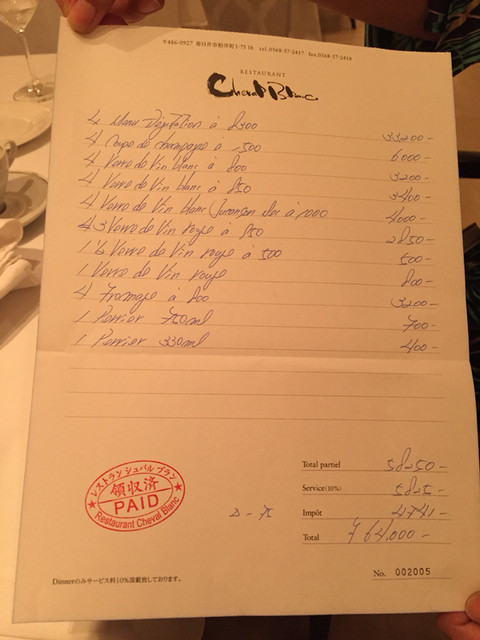 〒486-0927 春日井市柏井町1-75 1b tel.0568-37-2417 fax.0568-37-2418
RESTAURANT
Cheval Blanc
4 Menu Dégustation à 8300 33200-
4 Coupe de champagne à 1500 6000-
4 Verre de Vin blanc à 800 3200-
4 Verre de Vin blanc à 850 3400-
4 Verre de Vin blanc Jurançon Sec à 1000 4000-
3 Verre de Vin rouge à 950 2850-
1 ½ Verre de Vin rouge à 500 500-
1 Verre de Vin rouge 800-
4 Fromage à 800 3200-
1 Perrier 750ml 700-
1 Perrier 330ml 400-
Total partiel 58250-
Service(10%) 5825-
Impôt 4741-
Total ¥64,000-
レストラン シュバル ブラン
領収済
PAID
Restaurant Cheval Blanc
Dinnerのみサービス料10%頂戴致しております。
No. 002005